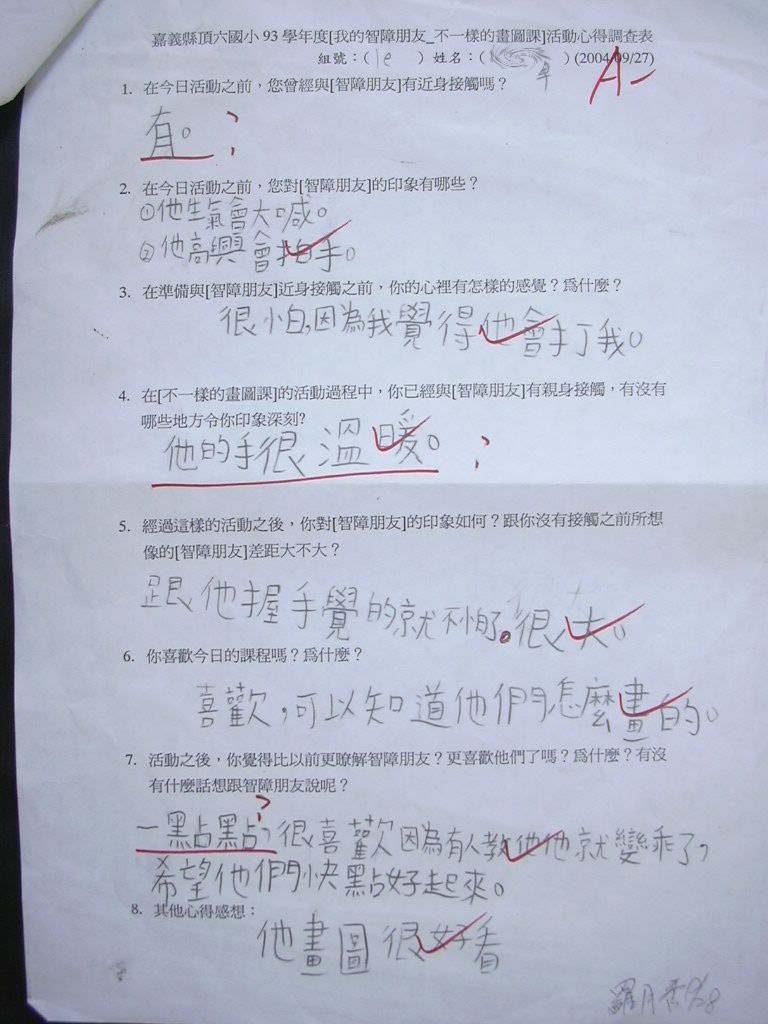 嘉義縣頂六國小 93 學年度[我的智障朋友_不一樣的畫圖課]活動心得調查表
組號：( 1e ) 姓名：( ) (2004/09/27)
A-
1. 在今日活動之前，您曾經與[智障朋友]有近身接觸嗎？
有。？
2. 在今日活動之前，您對[智障朋友]的印象有哪些？
①他生氣會大喊。
②他高興會拍手。
3. 在準備與[智障朋友]近身接觸之前，你的心裡有怎樣的感覺？爲什麼？
很小怕,因為我覺得他會打我。
4. 在[不一樣的畫圖課]的活動過程中，你已經與[智障朋友]有親身接觸，有沒有
哪些地方令你印象深刻?
他的手很溫暖。？
5. 經過這樣的活動之後，你對[智障朋友]的印象如何？跟你沒有接觸之前所想
像的[智障朋友]差距大不大？
跟他握手覺的就不怕了。很大。
6. 你喜歡今日的課程嗎？爲什麼？
喜歡，可以知道他們怎麼畫的。
7. 活動之後，你覺得比以前更瞭解智障朋友？更喜歡他們了嗎？爲什麼？有沒
有什麼話想跟智障朋友說呢？
？
一點點，很喜歡因為有人教他他就變乖了，
希望他們快點好起來。
8. 其他心得感想：
他畫圖很好看
羅月香 9/28